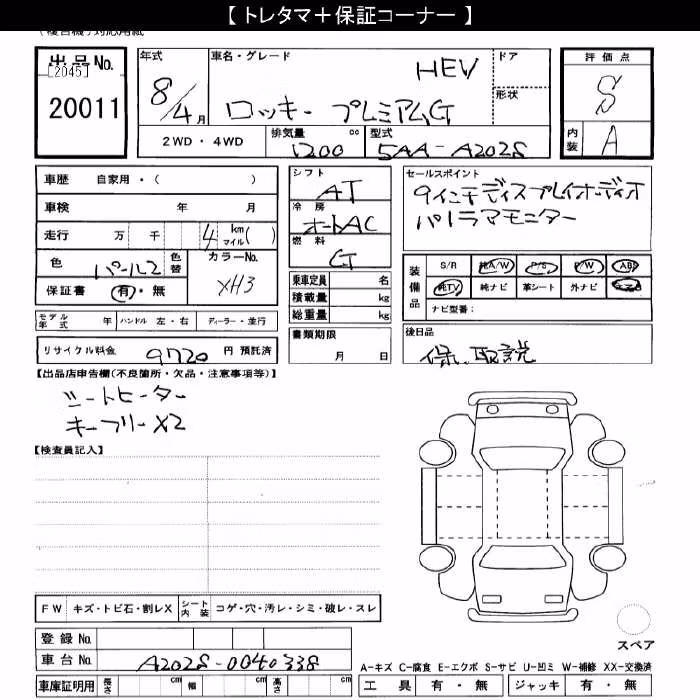 【 トレタマ＋保証コーナー 】
出品 No.
[2045]
20011
年式
8/4 月
車名・グレード
HEV
ロッキー プレミアムG
ドア
形状
評価点
S
内装
A
2WD・4WD
排気量
1200 cc
型式
5AA-A202S
車歴 自家用・( )
車検 年 月
走行 万 千 4 km マイル( )
色 パール2 色替
カラーNo.
XH3
保証書 有・無
モデル年式 年 ハンドル 左・右 ディーラー・並行
リサイクル料金 9720 円 預託済
シフト
AT
冷房
オートAC
燃料
G
乗車定員 名
積載量 kg
総重量 kg
書類期限
月 日
セールスポイント
9インチディスプレイオーディオ
パノラマモニター
装備品
S/R 純A/W P/S P/W ABS
純TV 純ナビ 革シート 外ナビ
ナビ型番：
後日品
保、取説
【出品店申告欄(不良箇所・欠品・注意事項等)】
シートヒーター
キーフリーX2
【検査員記入】
FW キズ・トビ石・割レX シート内装 コゲ・穴・汚レ・シミ・破レ・スレ
登録 No.
車台 No. A202S-0040338
車庫証明用 長さ cm 幅 cm 高さ cm
スペア
A-キズ C-腐食 E-エクボ S-サビ U-凹ミ W-補修 XX-交換済
工具 有・無 ジャッキ 有・無